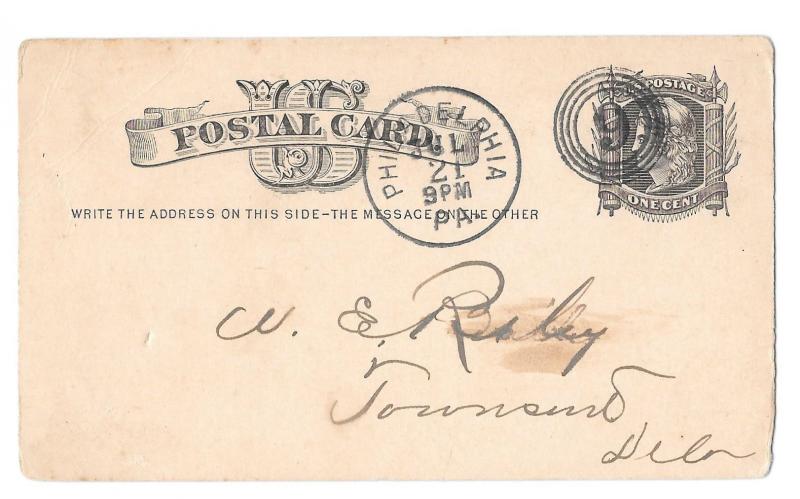 US
POSTAL CARD.
WRITE THE ADDRESS ON THIS SIDE-THE MESSAGE ON THE OTHER
PHILADELPHIA
JUL
21
9PM
PA.
U.S. POSTAGE
9
ONE CENT
W. E. Riley
Townsend
Dela